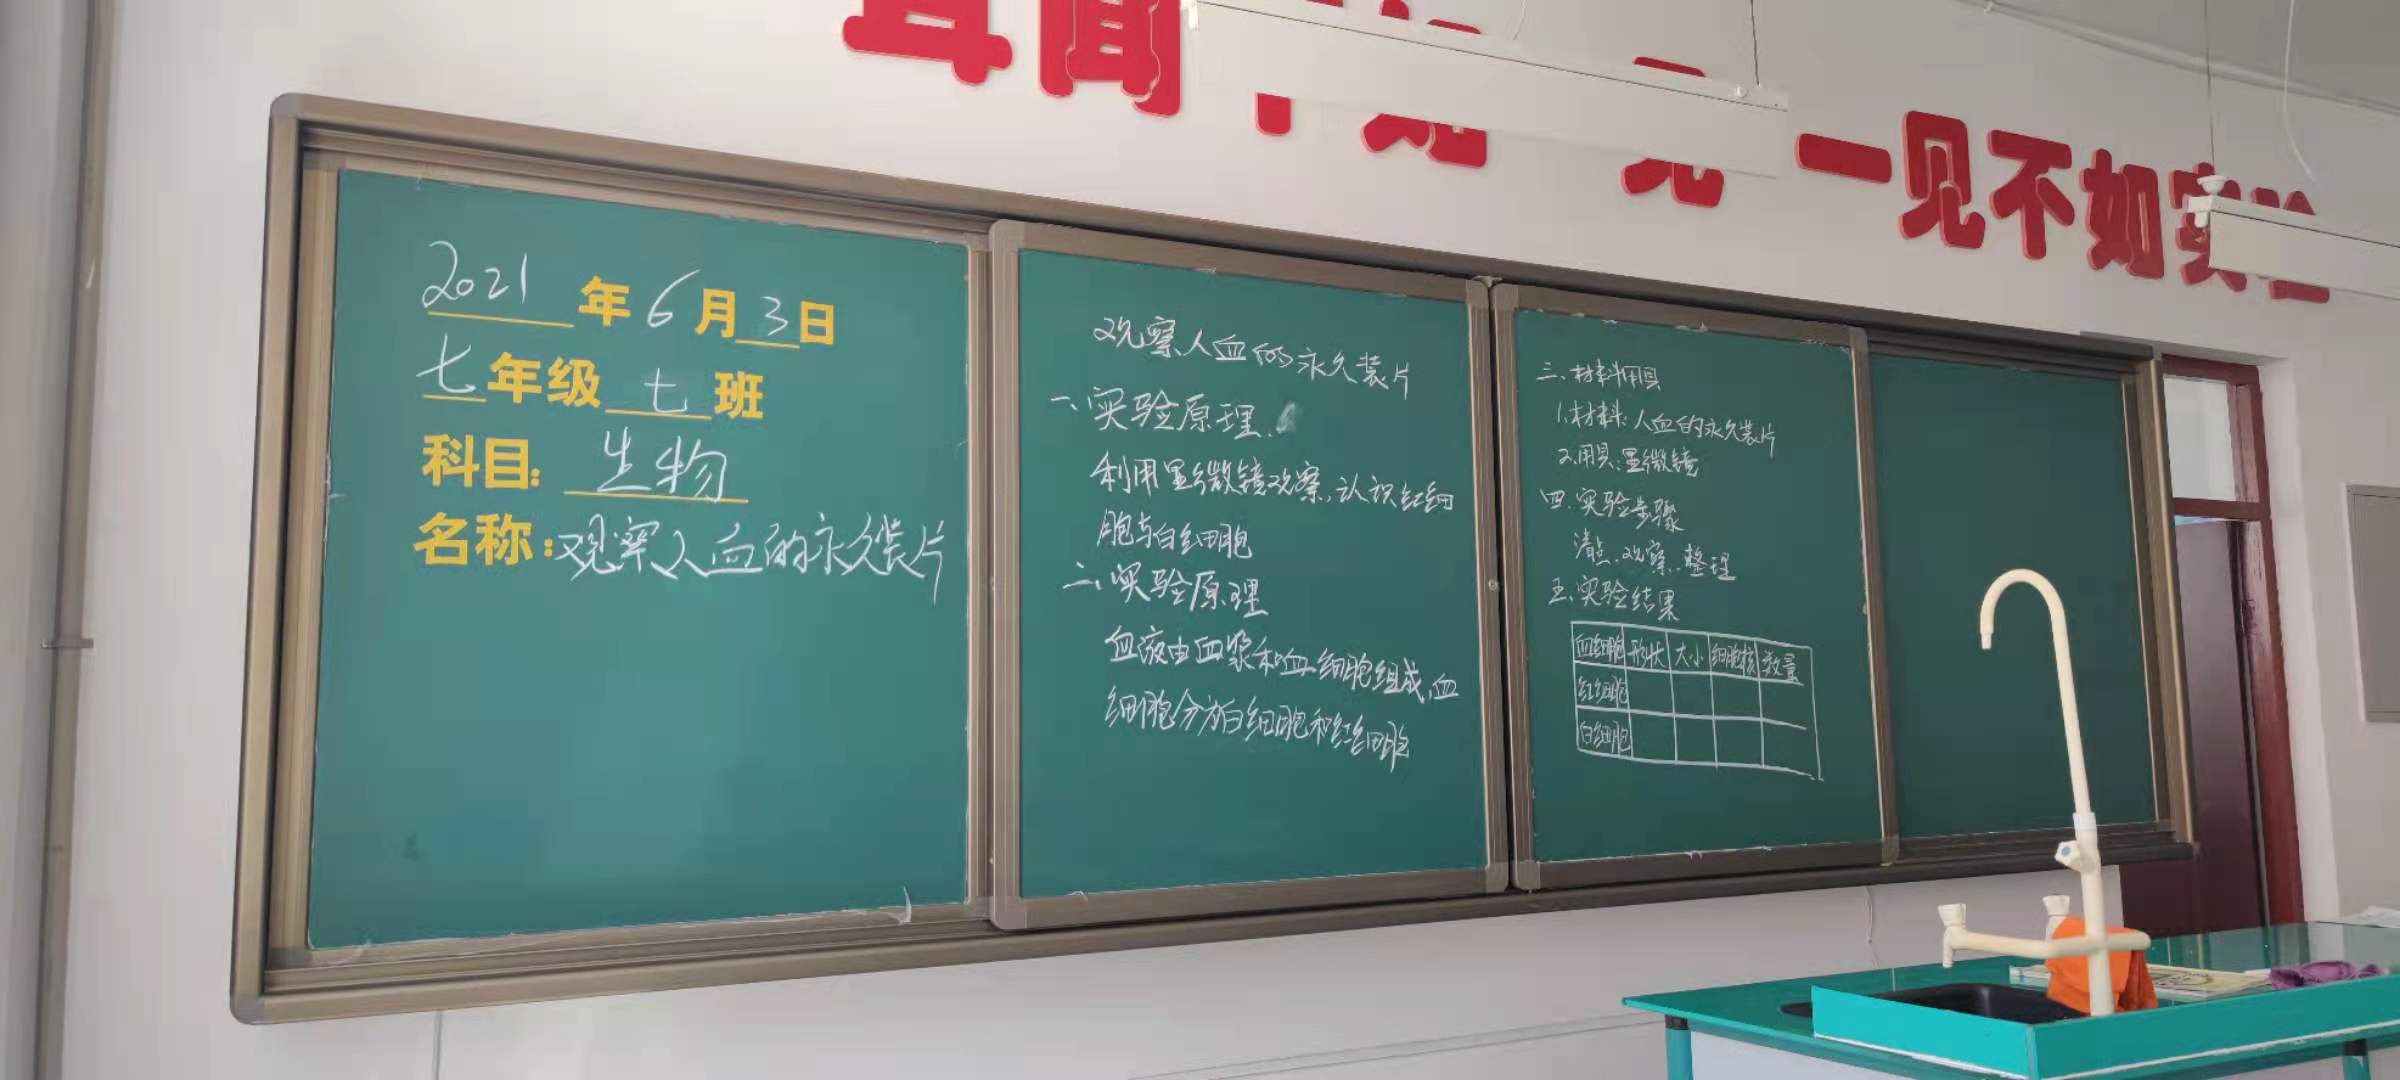 耳闻不如一见一见不如实验
2021年6月3日
七年级七班
科目:生物
名称:观察人血的永久装片
观察人血的永久装片
一、实验原理、
利用显微镜观察,认识红细
胞与白细胞
二、实验原理
血液由血浆和血细胞组成,血
细胞分为白细胞和红细胞
三、材料用具
1.材料:人血的永久装片
2.用具:显微镜
四、实验步骤
清点、观察、整理
五、实验结果
血细胞 形状 大小 细胞核 数量
红细胞
白细胞